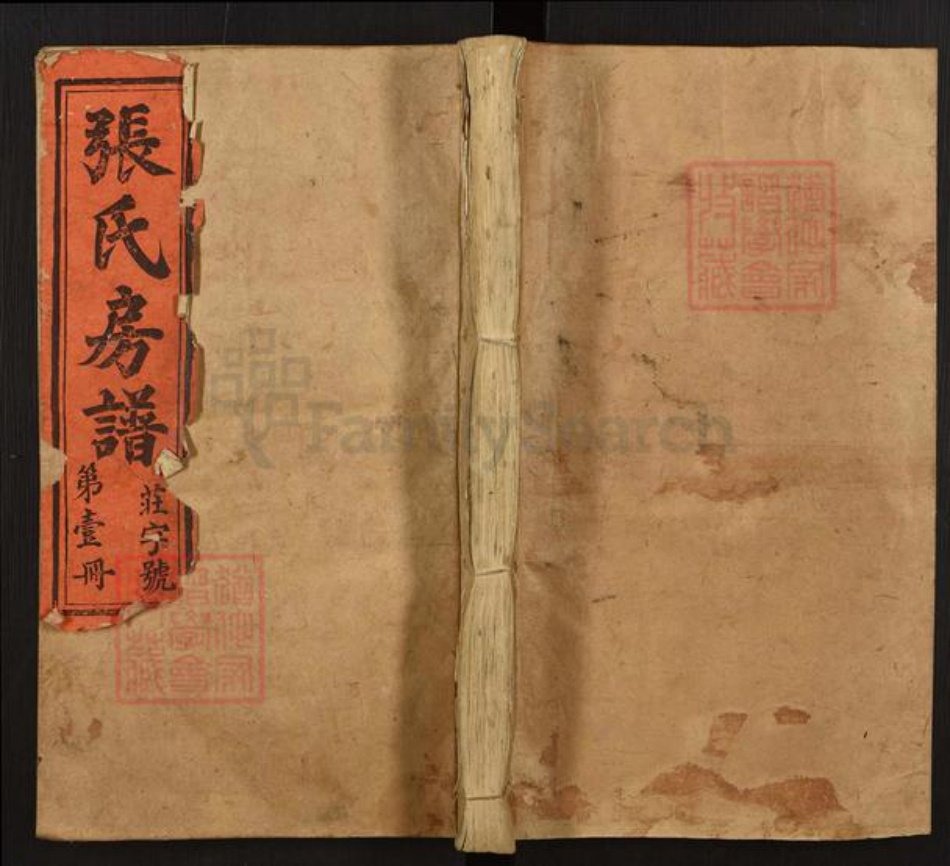 張氏房譜
莊字號
第壹冊
FamilySearch